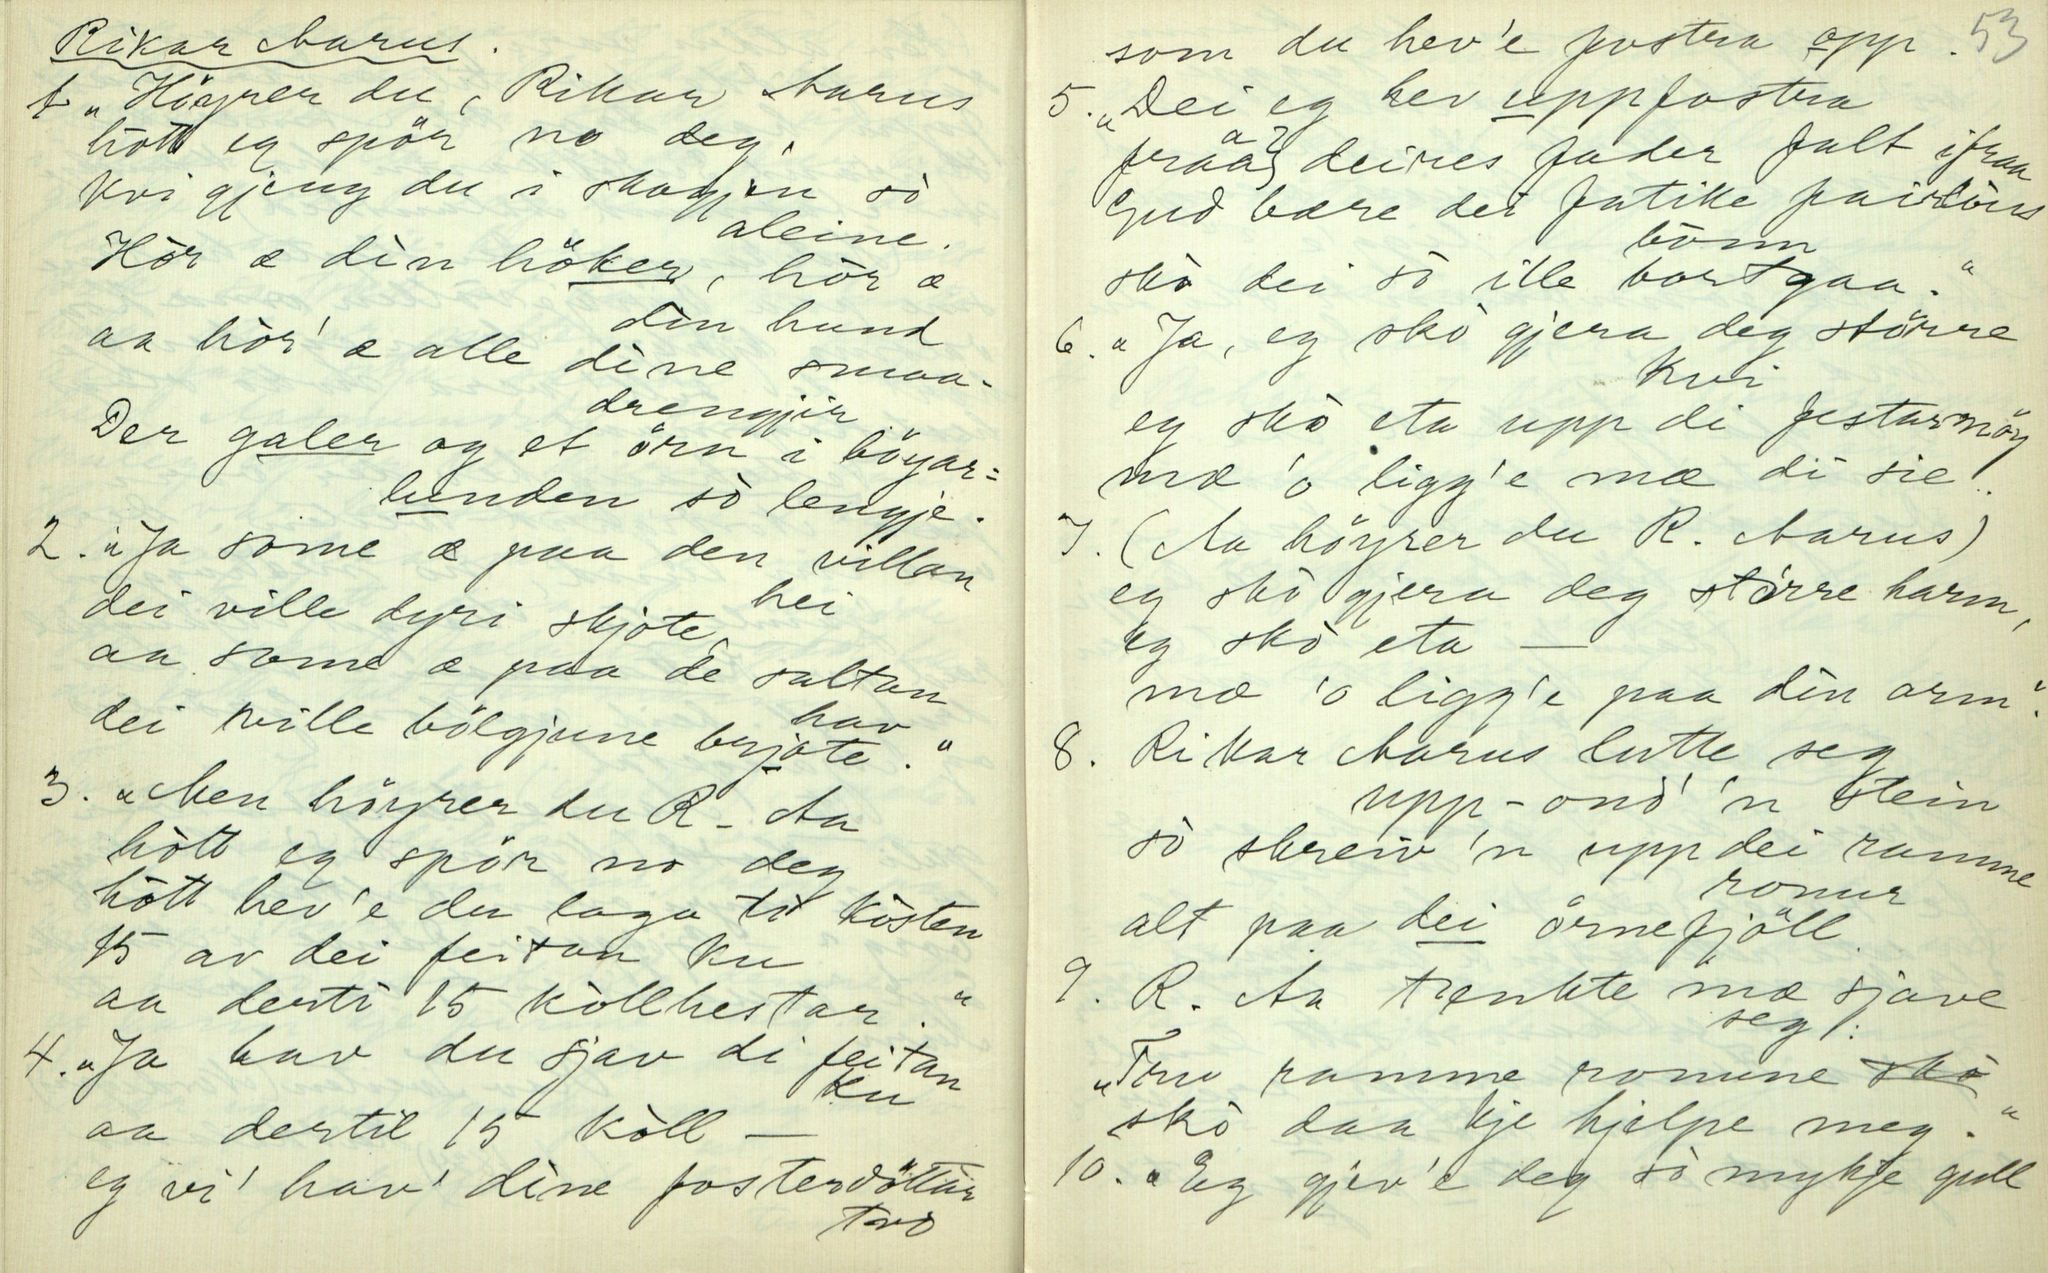 Rikar Aarus.
1. „Höyrer du, Rikar Aarus
hòtt eg spör no deg,
kvi gjeng du i skogjen sò
aleine.
Hòr æ dìn höker, hòr æ
dìn hund
aa hòr' æ alle dìne smaa-
drengjir
Der galer og et örn i böyar=
lunden sò lengje.
2. „Ja some æ paa den villan
hei
dei ville dyri skjote,
aa some æ paa de saltan
hav
dei ville bölgjune brjote."
3. „Men höyrer du R. Aa
hòtt eg spör no deg
hòtt hev'e du laga tì kòsten
15 av dei feitan ku
aa dertì 15 kòllhestar."
4. „Ja hav du sjav di feitan
ku
aa dertil 15 kòll —
eg vi' hav' dìne fosterdöttar
two
53
som du hev'e fostra opp.
5. „Dei eg hev uppfostra
fraa deires fader falt ifraa
Gud bære dei fatike fairlòus
bònn
skò dei sò ille bortgaa."
6. „Ja, eg skò gjera deg större
kvi
eg skò eta upp di festarmöy
mæ 'o ligg'e mæ di sie!"
7. (Aa höyrer du R. Aarus)
eg skò gjera deg större harm,
eg skò eta —
mæ 'o ligg'e paa dìn arm".
8. Rikar Aarus lutte seg
upp-ond' 'n stein
sò skreiv 'n upp dei ramme
ronur
alt paa dei örnefjöll.
9. R. Aa tenkte mæ sjave
seg:
„Tru ramme ronune skò
skò daa kje hjelpe meg."
10. „Eg gjev'e deg sò mykje gull